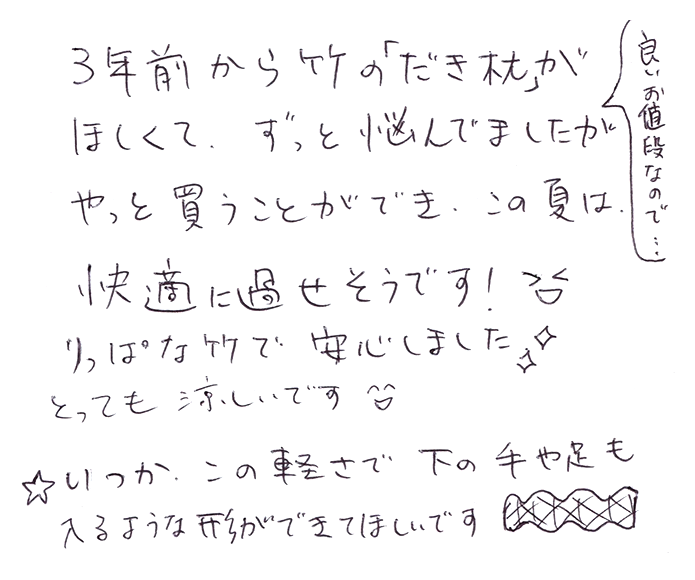 3年前から竹の「だき枕」が
ほしくて、ずっと悩んでましたが
やっと買うことができ、この夏は、
快適に過せそうです!
りっぱな竹で安心しました
とっても涼しいです
☆いつか、この軽さで下の手や足も
入るような形ができてほしいです
良いお値段なので…